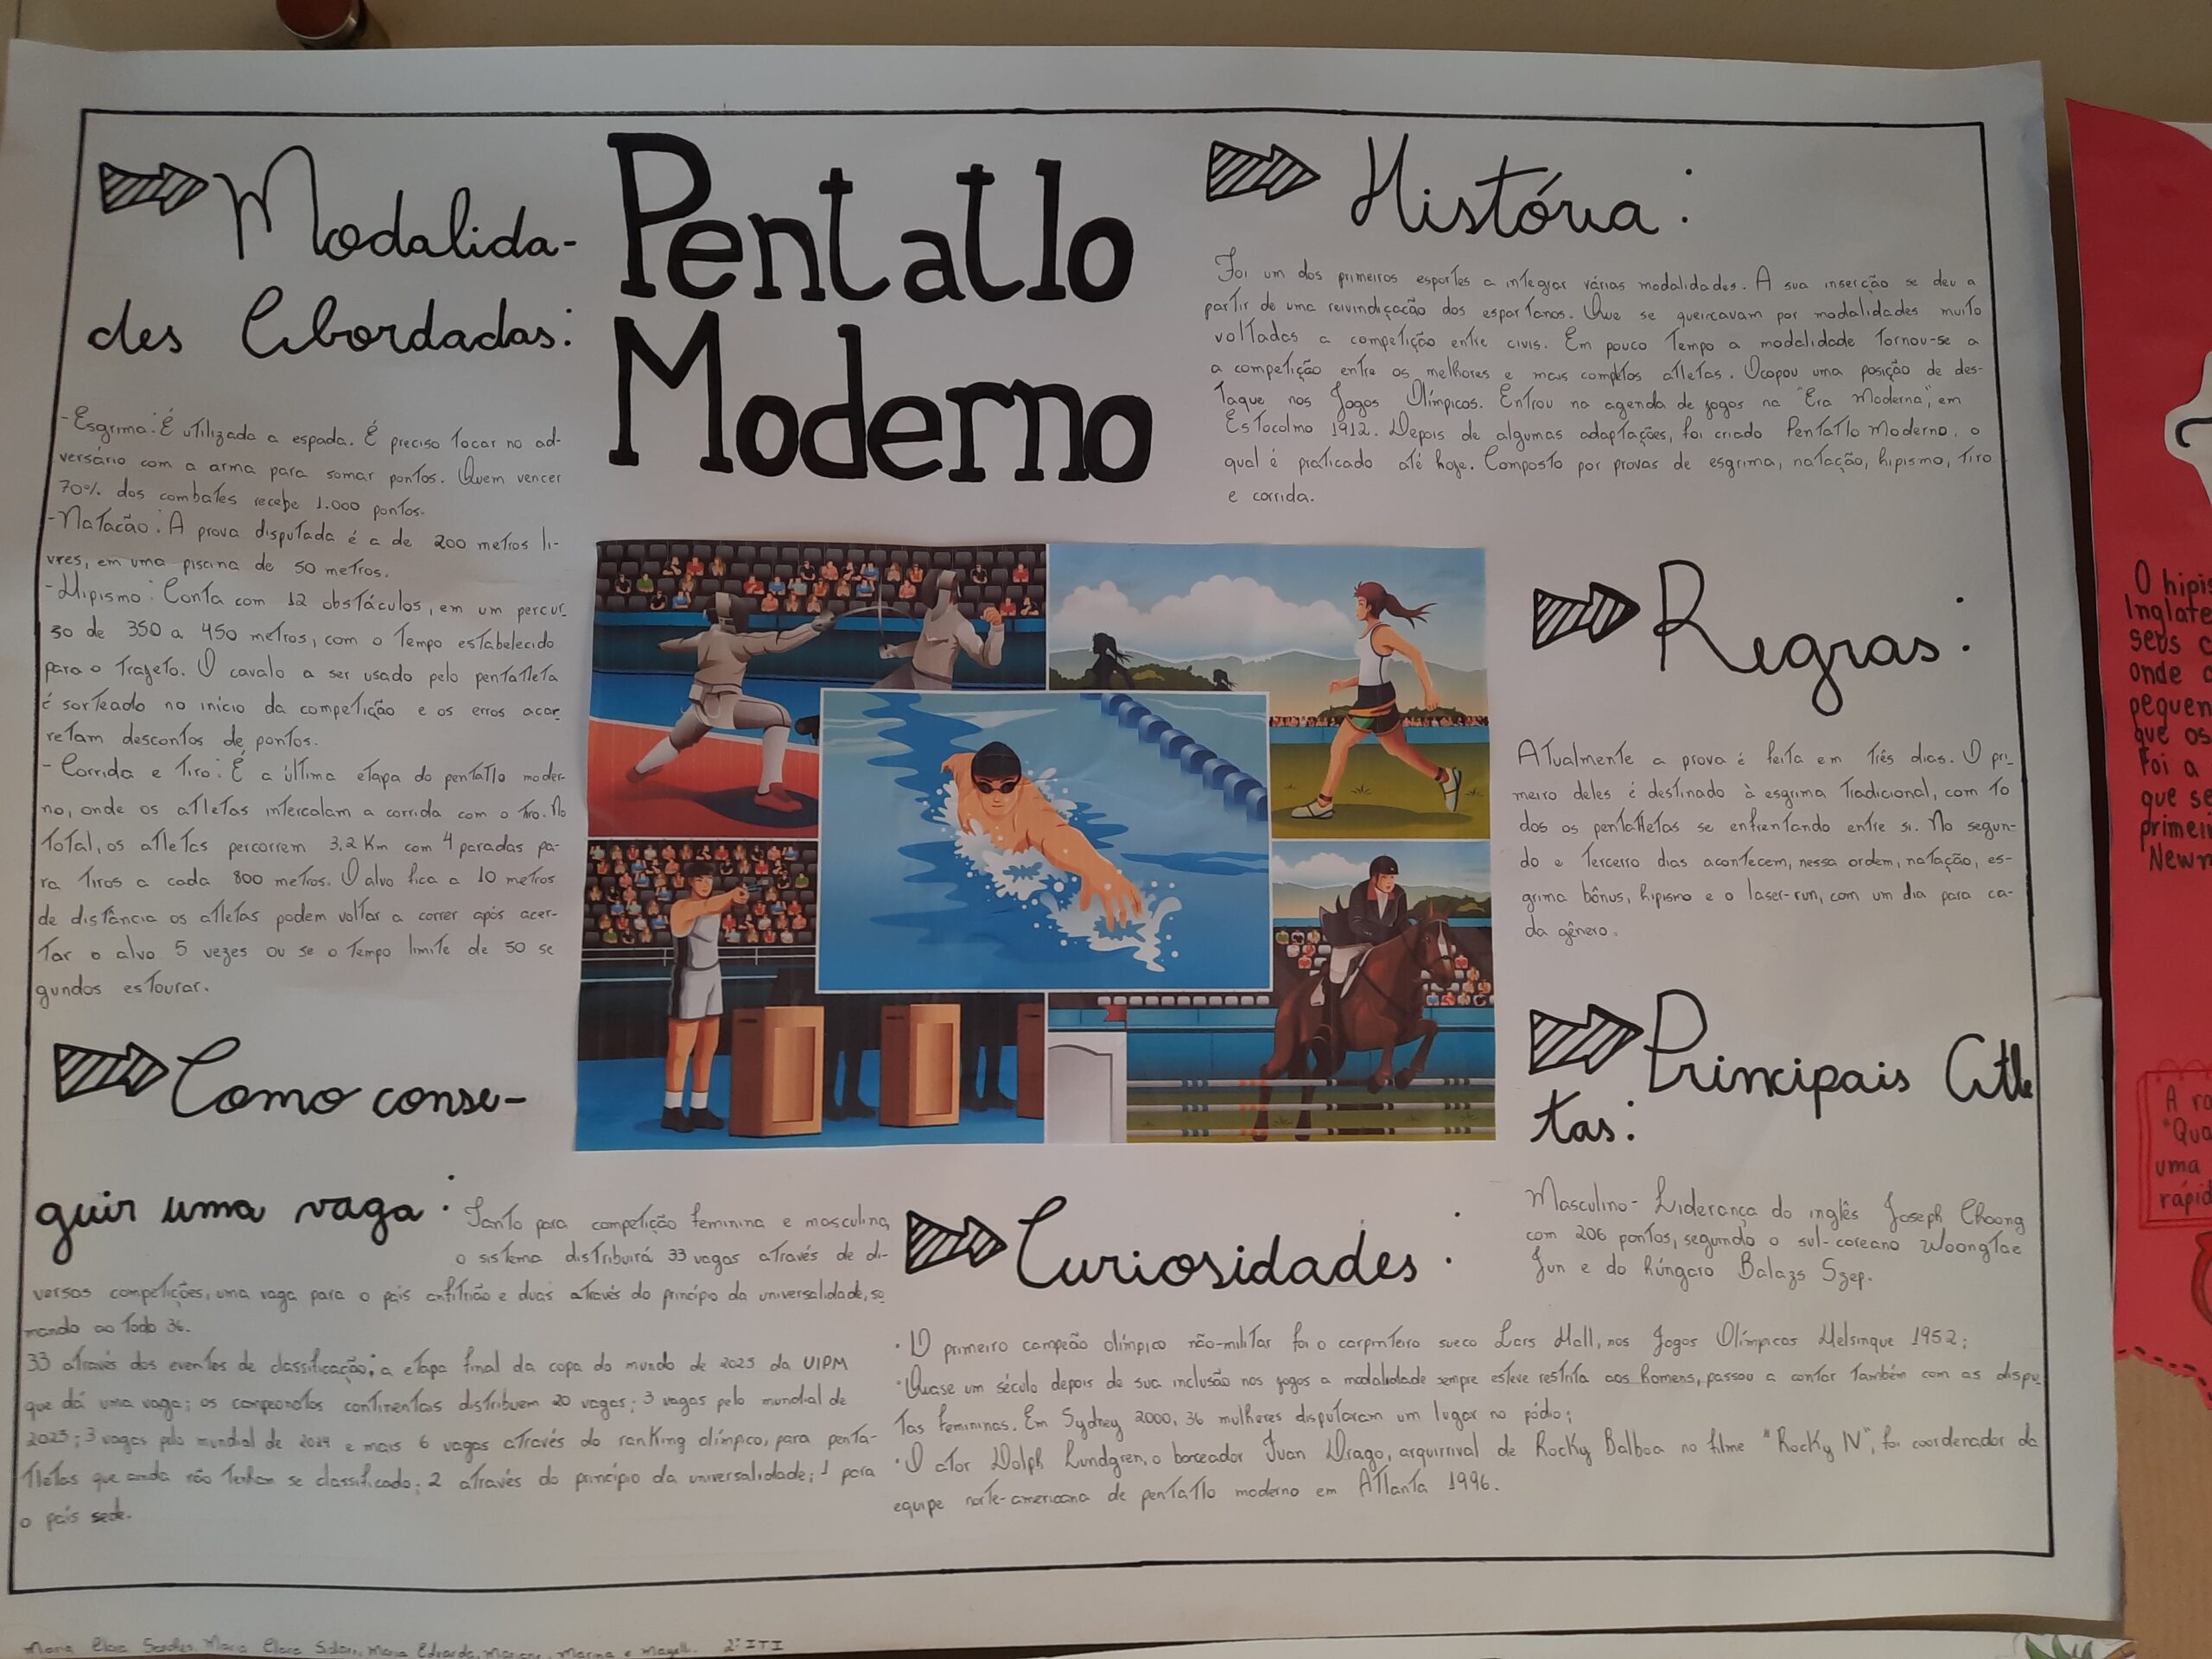 Pentatlo
Moderno
Modalida-
des Abordadas:
-Esgrima: É utilizada a espada. É preciso tocar no ad-
versário com a arma para somar pontos. Quem vencer
70% dos combates recebe 1.000 pontos.
-Natacão: A prova disputada é a de 200 metros li-
vres, em uma piscina de 50 metros.
-Hipismo: Conta com 12 obstáculos, em um percur-
so de 350 a 450 metros, com o tempo estabelecido
para o trajeto. O cavalo a ser usado pelo pentatleta
é sorteado no início da competição e os erros acar
retam descontos de pontos.
- Corrida e tiro: É a última etapa do pentatlo moder-
no, onde os atletas intercalam a corrida com o tiro. No
total, os atletas percorrem 3,2 Km com 4 paradas pa-
ra tiros a cada 800 metros. O alvo fica a 10 metros
de distância os atletas podem voltar a correr após acer-
tar o alvo 5 vezes ou se o tempo limite de 50 se
gundos estourar.
Como conse-
guir uma vaga:
Tanto para competição feminina e masculina,
o sistema distribuirá 33 vagas através de di-
versas competições, uma vaga para o país anfitrião e duas através do princípio da universalidade, so
mando ao todo 36.
33 através dos eventos de classificação; a etapa final da copa do mundo de 2023 da UIPM
que dá uma vaga; os campeonatos continentais distribuem 20 vagas; 3 vagas pelo mundial de
2023; 3 vagas pelo mundial de 2024 e mais 6 vagas através do ranking olímpico, para penta-
tletas que ainda não tenham se classificado; 2 através do princípio da universalidade; 1 para
o país sede.
História:
Foi um dos primeiros esportes a integrar várias modalidades. A sua inserção se deu a
partir de uma reivindicação dos espartanos. Que se queixavam por modalidades muito
voltadas a competição entre civis. Em pouco tempo a modalidade tornou-se a
a competição entre os melhores e mais completos atletas. Ocopou uma posição de des-
taque nos Jogos Olímpicos. Entrou na agenda de jogos na "Era Moderna", em
Estocolmo 1912. Depois de algumas adaptações, foi criado Pentatlo Moderno, o
qual é praticado até hoje. Composto por provas de esgrima, natação, hipismo, tiro
e corrida.
Regras:
Atualmente a prova é feita em três dias. O pri-
meiro deles é destinado à esgrima tradicional, com to
dos os pentatletas se enfrentando entre si. No segun-
do e terceiro dias acontecem, nessa ordem, natação, es-
grima bônus, hipismo e o laser-run, com um dia para ca-
da gênero.
Principais Atle
tas:
Masculino- Liderança do inglês Joseph Choong
com 206 pontos, seguindo o sul-coreano Woongtae
Jun e do húngaro Balazs Szep.
Curiosidades:
• O primeiro campeão olímpico não-militar foi o carpinteiro sueco Lars Hall, nos Jogos Olímpicos Helsinque 1952;
• Quase um século depois de sua inclusão nos jogos a modalidade sempre esteve restrita aos homens, passou a contar também com as dispu
tas femininas. Em Sydney 2000, 36 mulheres disputaram um lugar no pódio;
• O ator Dolph Lundgren, o boxeador Ivan Drago, arquirrival de Rocky Balboa no filme "Rocky IV", foi coordenador da
equipe norte-americana de pentatlo moderno em Atlanta 1996.
Maria Clara Maria Clara Maria Eduarda, Marina e 2° ITI
O hipis
Inglate
seus c
onde
pequen
que os
foi a
que se
primei
Newm
A ro
"Qua
uma
rápid